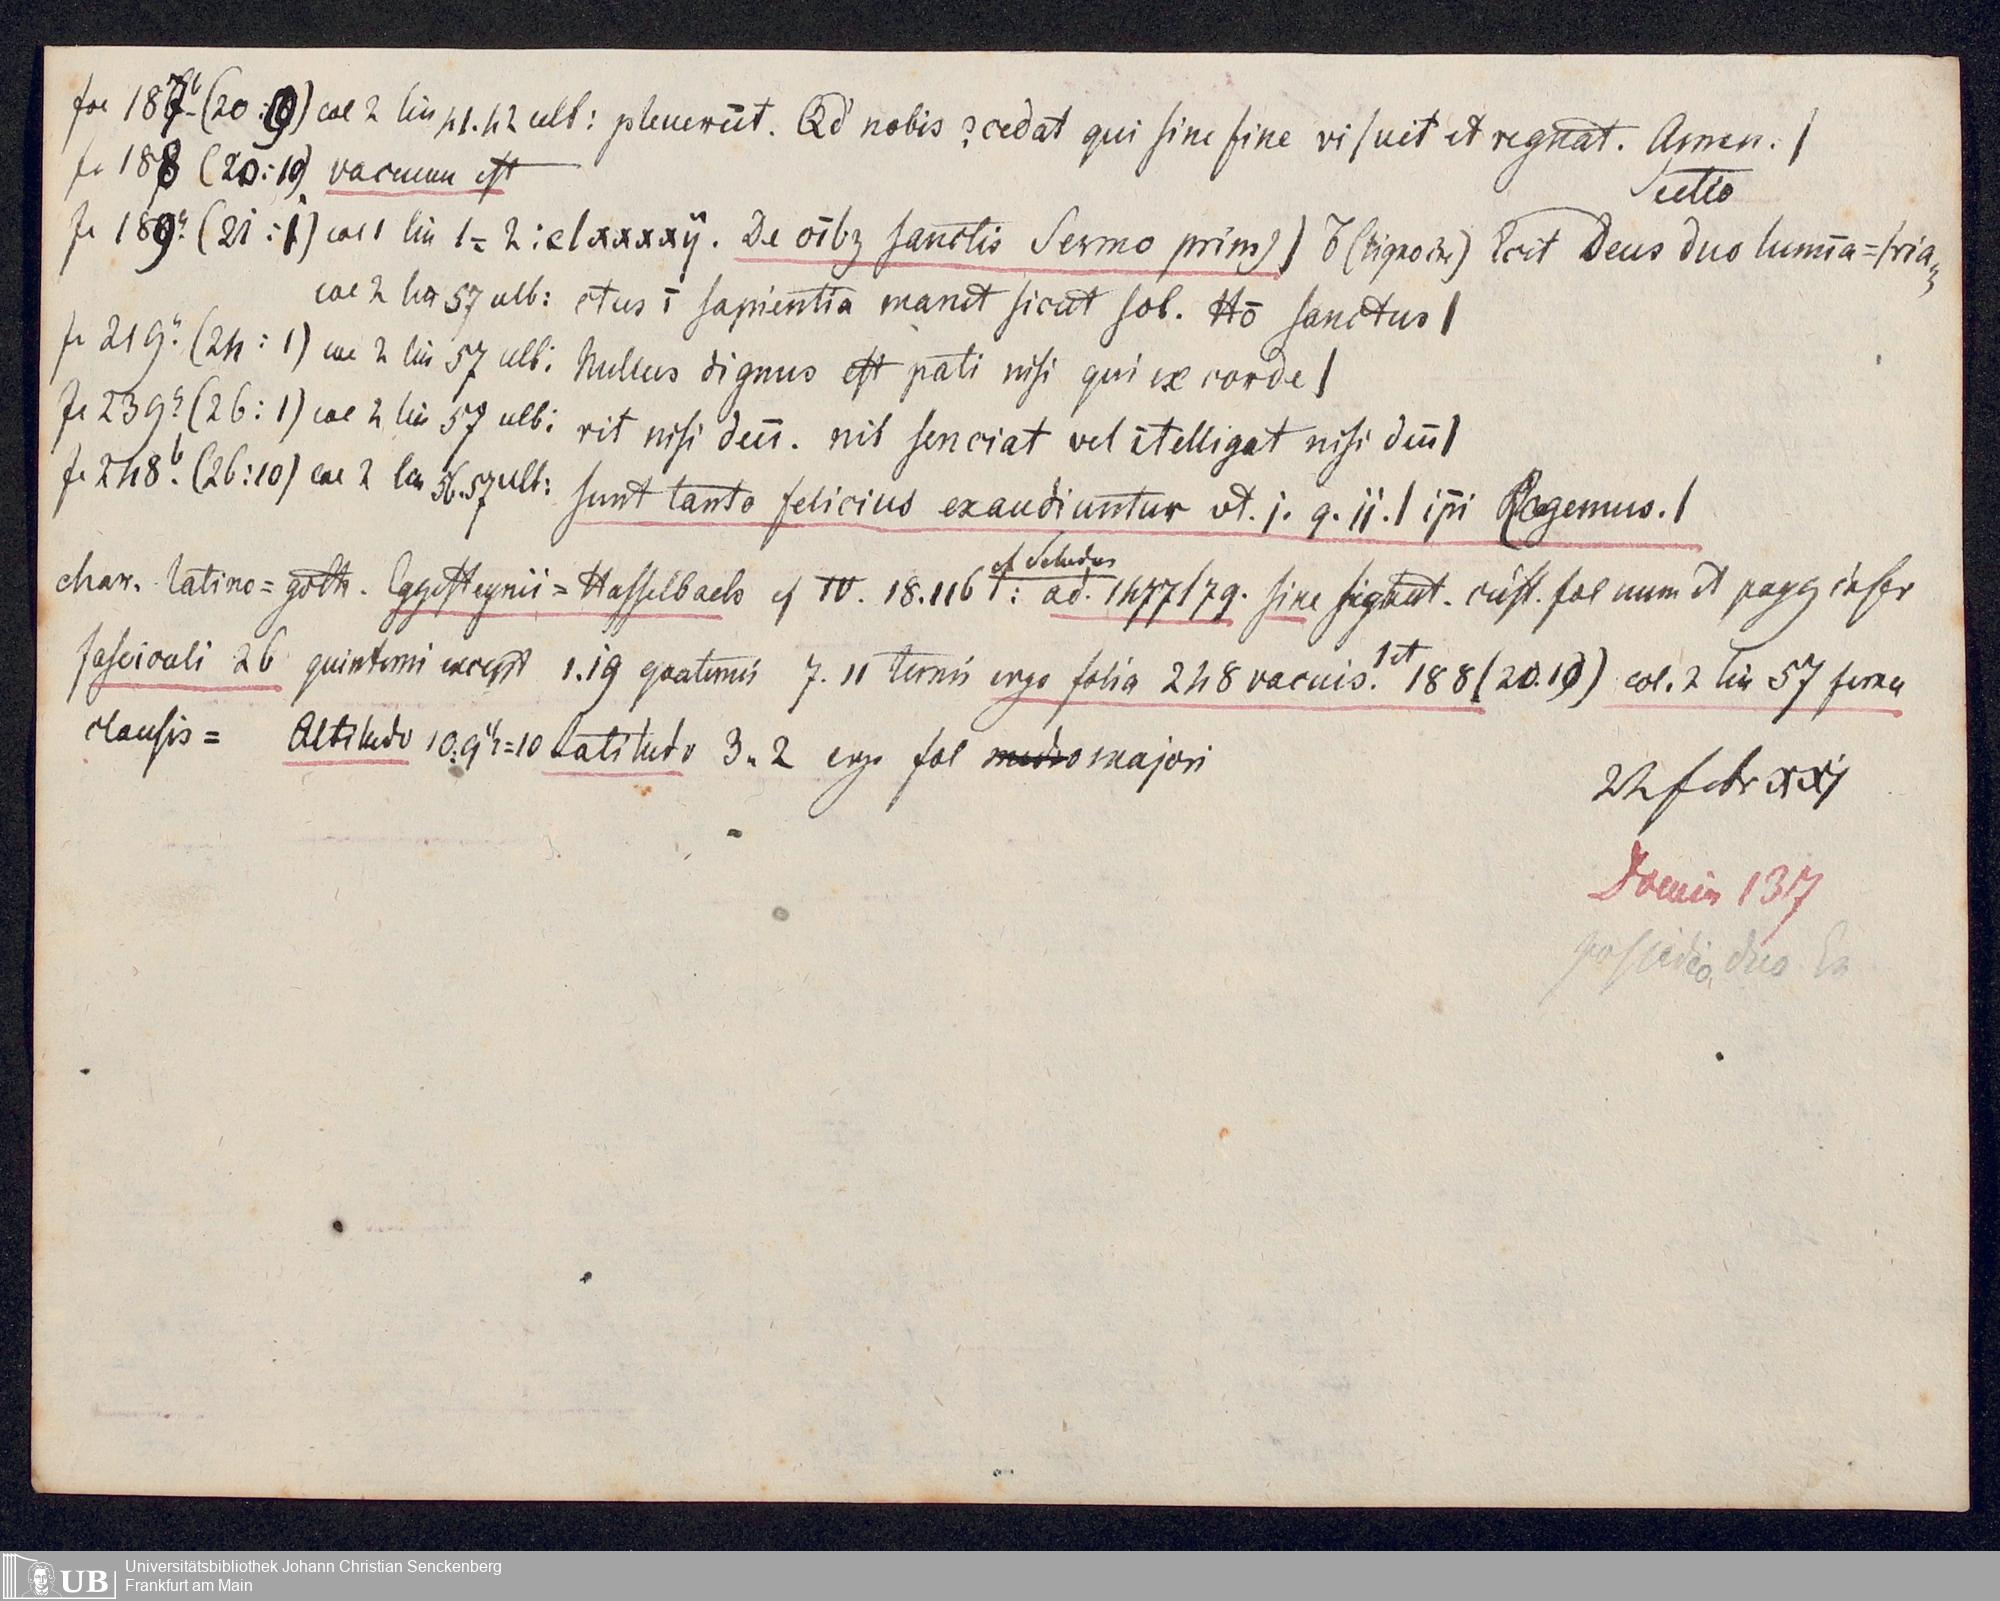 fol 187b (20:9) col 2 lin 41.42 ult: pleuerūt. Qd nobis ꝯcedat qui sine fine vi/uit et regnat. Amen. /
fo 188 (20:10) vacuum est
fo 189a (21:1) col 1 lin 1=2: clxxxxij. De oībꝫ sanctis Sermo primꝰ / F (ligno inc) Ecit Deus duo lumīa=/ria
col 2 lin 57 ult: ctus ī sapientia manet sicut sol. Hō sanctus /
fo 219a (24:1) col 2 lin 57 ult: Nullus dignus est pati nisi qui ex corde /
fo 239a (26:1) col 2 lin 57 ult: rit nisi deū. nil senciat vel ītelligat nisi deū /
fo 248b (26:10) col 2 lin 56.57 ult: sunt tanto felicius exaudiuntur vt. j. q. ij. / ip̄i Rogemus. /
char. latino=goth. Eggesteynii=Hasselbach cf IV. 18.116 : ad. 1477/79. sine signat. cust. fol num et pagg infer
fasciculi 26 quinterni except 1.19 quaternis 7. 11 ternis ergo folia 248 vacuis. 1 et 188 (20.10) col. 2 lin 57 ferme
clausis = Altitudo 10.9 =10 Latitudo 3. 2 ergo fol majori
24 febr xxj
137
possideo duo Ex
UB
Universitätsbibliothek Johann Christian Senckenberg
Frankfurt am Main